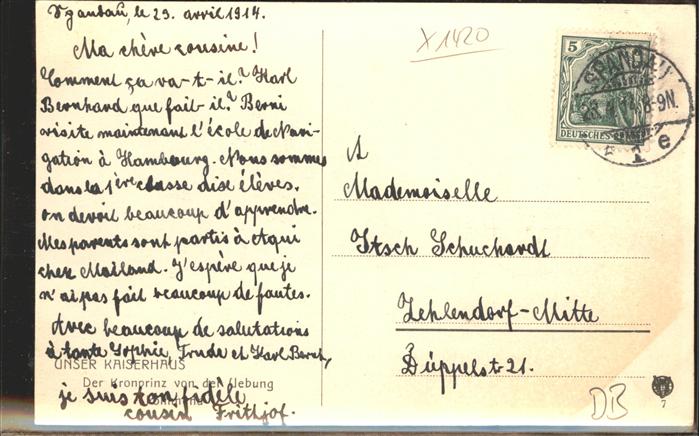 Spandau, le 23. avril 1914.
Ma chère cousine!
Comment ça va-t-il? Karl
Bernhard que fait-il? Berni
visite maintenant l'école de Navi-
gation à Hambourg. Nous sommes
dans la 1ère classe dix élèves.
on devoit beaucoup d'apprendre.
Mes parents sont partis à Aqui
chez Mailand. J'espère que je
n'ai pas fait beaucoup de fautes.
Avec beaucoup de salutations
à tante Sophie, Trude et Karl Bernh,
je suis ton fidèle
cousin Frithjof.
UNSER KAISERHAUS
Der Kronprinz von der Hebung
X1420
5
DEUTSCHES REICH
SPANDAU
8-9N.
1 e
A
Mademoiselle
Itsch Schuchardt
Zehlendorf-Mitte
Düppelstr 21.
DB
7